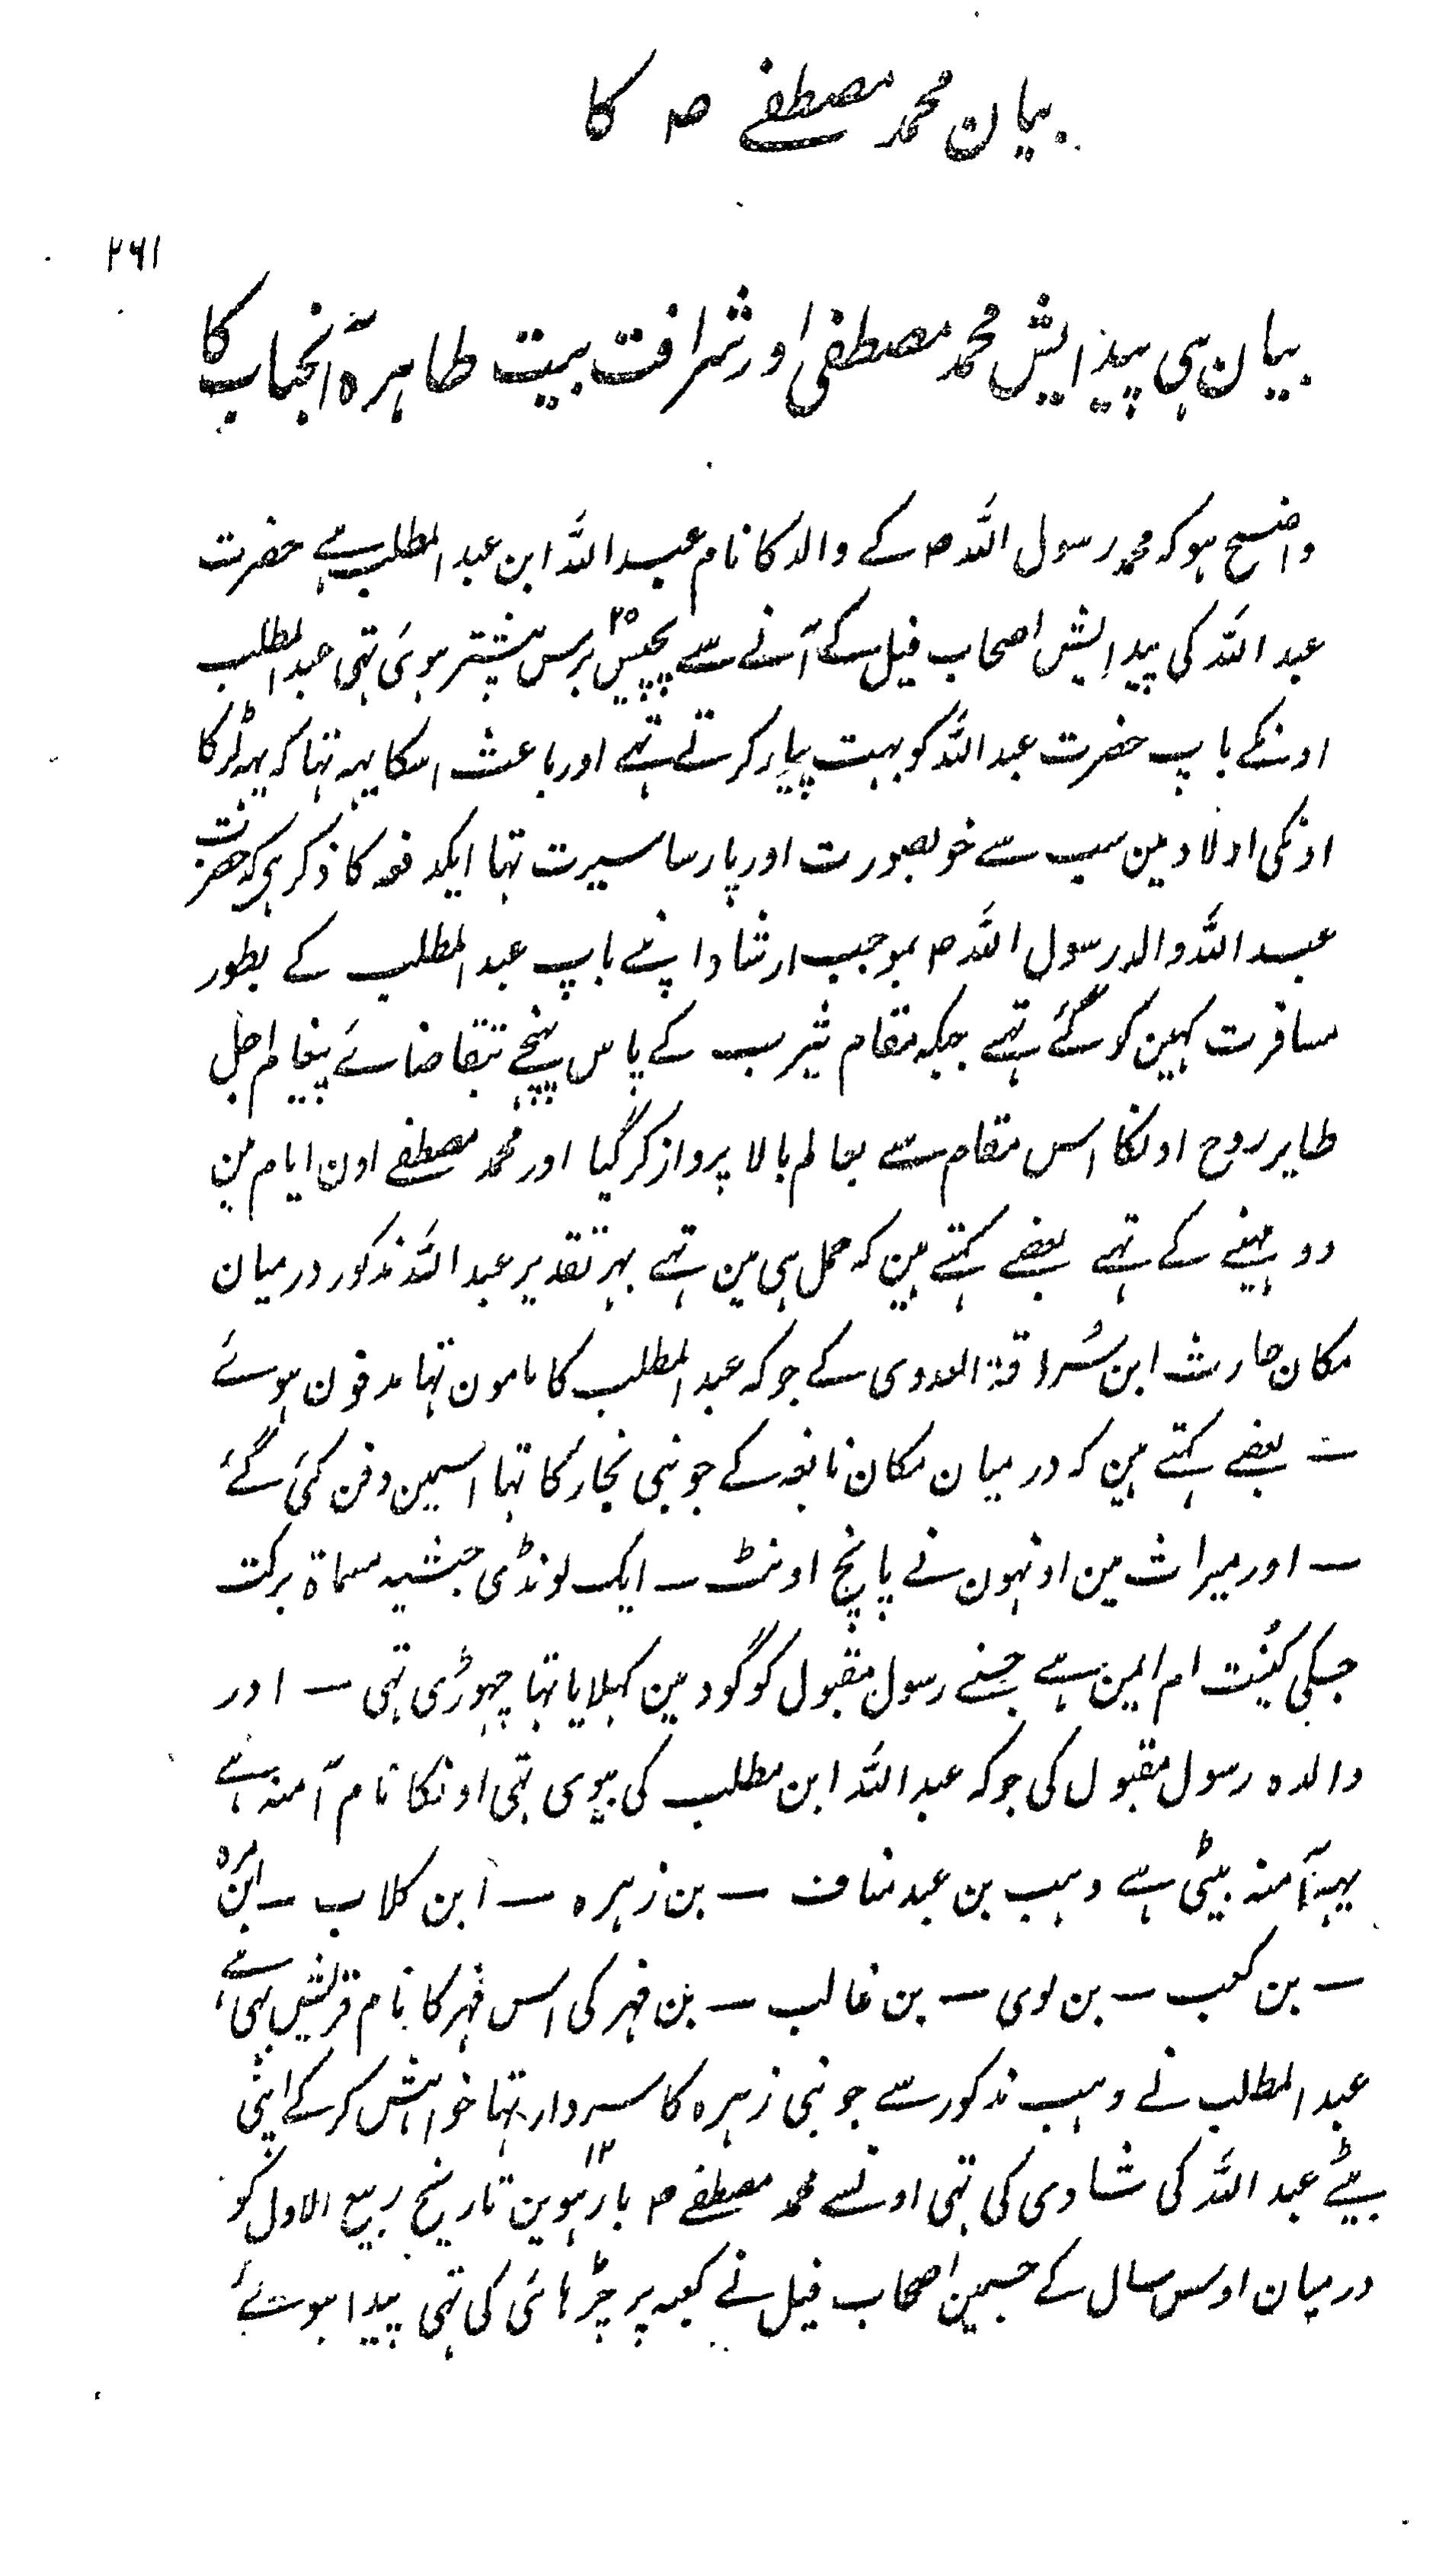 بیان محمد مصطفے ص کا
۲۶۱
بیان ہی پیدایش محمد مصطفی اور شرافت بیت طاہرہ آنجناب کا
واضح ہو کہ محمد رسول اللہ ص کے والد کا نام عبد اللہ ابن عبد المطلب ہے حضرت
عبد اللہ کی پیدایش اصحاب فیل کے آنے سے پچیس ۲۵ برس پیشتر ہوئی تہی عبد المطلب
اونکے باپ حضرت عبد اللہ کو بہت پیار کرتے تہے اور باعث اسکا یہہ تہا کہ یہہ لڑکا
اونکی اولاد مین سب سے خوبصورت اور پارسا سیرت تہا ایکدفعہ کا ذکر ہی کہ حضرت
عبد اللہ والد رسول اللہ ص بموجب ارشاد اپنے باپ عبد المطلب کے بطور
مسافرت کہین کو گئے تہے جبکہ مقام یثرب کے پاس پہنچے بتقاضائے پیغام اجل
طایر روح اونکا اس مقام سے بعالم بالا پرواز کر گیا اور محمد مصطفے اون ایام مین
دو مہینے کے تہے بعضے کہتے ہین کہ حمل ہی مین تہے بہر تقدیر عبد اللہ مذکور درمیان
مکان حارث ابن سُراقۃ العدوی کے جو کہ عبد المطلب کا مامون تہا مدفون ہوئے
ـ بعضے کہتے ہین کہ درمیان مکان نابغہ کے جو بنی نجار کا تہا اسمین دفن کئی گئے
ـ اور میراث مین اونہون نے پانچ اونٹ ـ ایک لونڈی حبشیہ مسماۃ برکت
جسکی کنیت ام ایمن ہے جسنے رسول مقبول کو گود مین کہلایا تہا چہوڑی تہی ـ اور
والدہ رسول مقبول کی جو کہ عبد اللہ ابن مطلب کی بیوی تہی اونکا نام آمنہ ہے
یہہ آمنہ بیٹی ہے وہب بن عبد مناف ـ بن زہرہ ـ ابن کلاب ـ ابن مرہ
ـ بن کعب ـ بن لوی ـ بن غالب ـ بن فہر کی اس فہر کا نام قریش بہی ہے
عبد المطلب نے وہب مذکور سے جو بنی زہرہ کا سردار تہا خواہش کر کے اپنی
بیٹے عبد اللہ کی شادی کی تہی اونسے محمد مصطفے ص بارہوین ۱۲ تاریخ ربیع الاول کو
درمیان اوس سال کے جسمین اصحاب فیل نے کعبہ پر چڑہائی کی تہی پیدا ہوئے